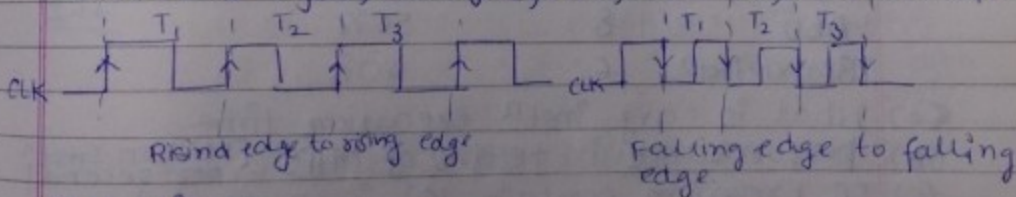 T1 T2 T3 T1 T2 T3
CLK CLK
Rising edge to rising edge
Falling edge to falling
edge